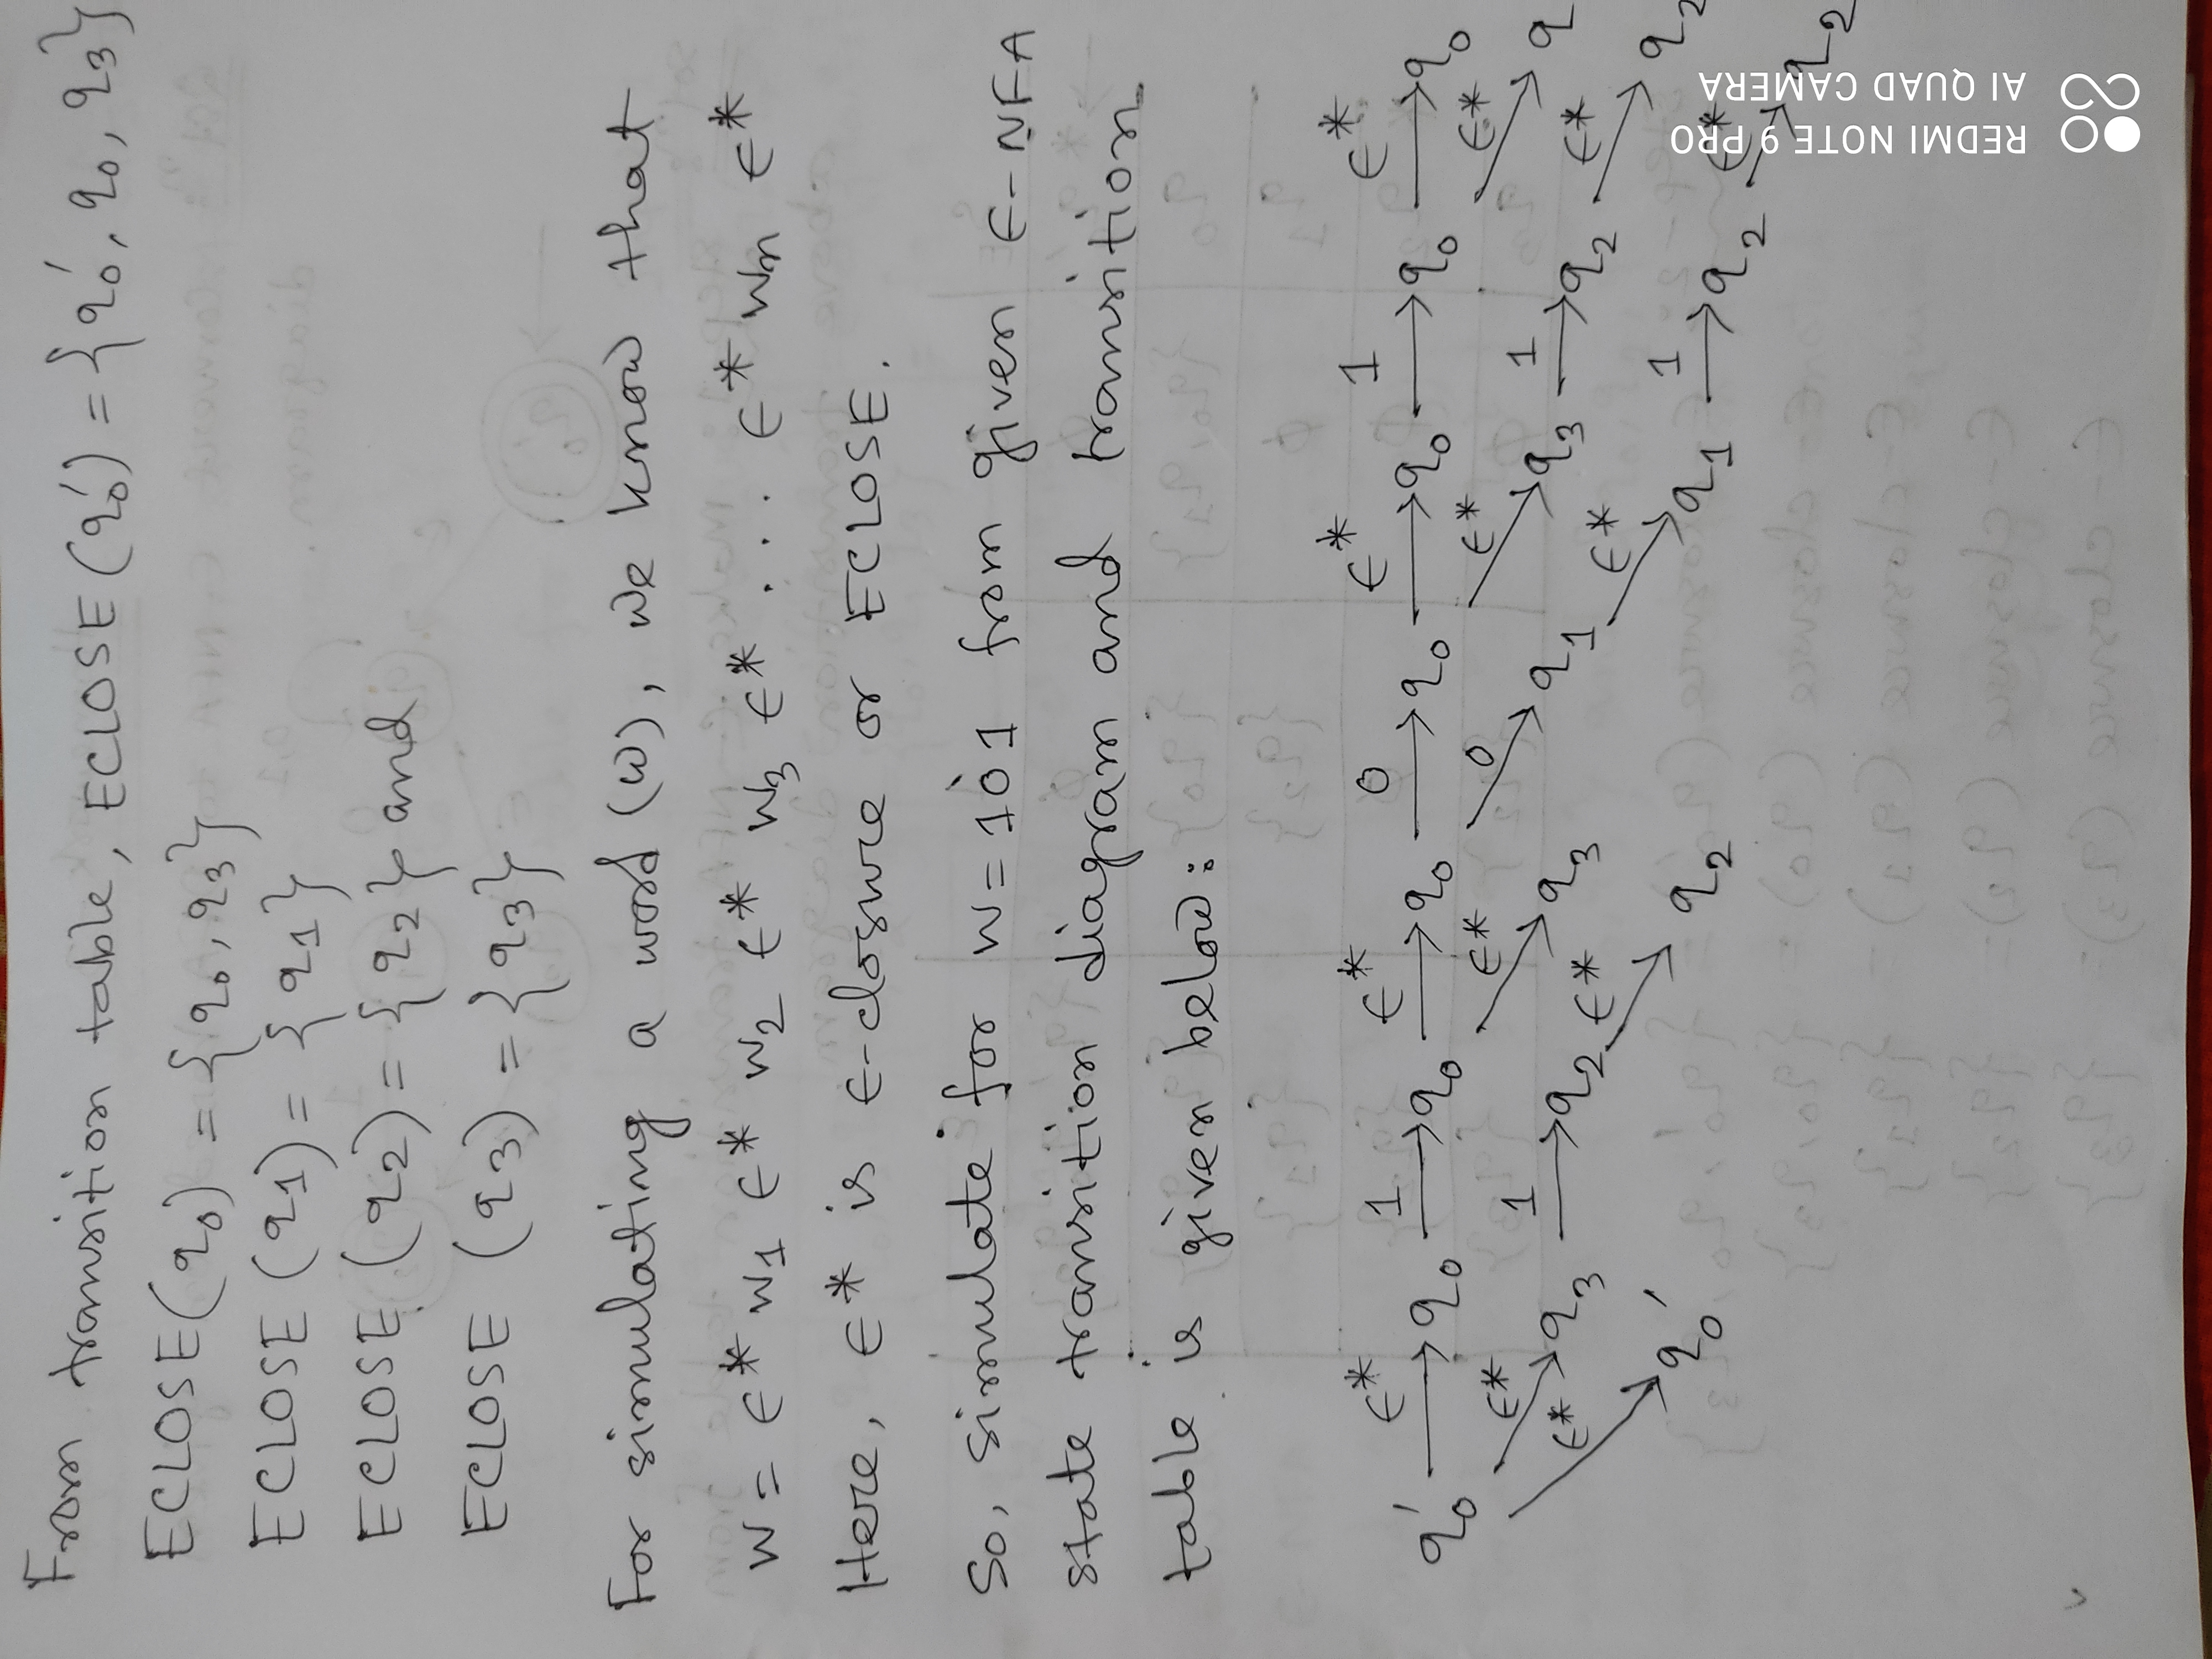 From transition table, ECLOSE (q₀′) = {q₀′, q₀, q₃}
ECLOSE(q₀) = {q₀, q₃}
ECLOSE (q₁) = {q₁}
ECLOSE (q₂) = {q₂} and
ECLOSE (q₃) = {q₃}
For simulating a word (w), we know that
w = ϵ* w₁ ϵ* w₂ ϵ* w₃ ϵ* ... ϵ* wₙ ϵ*
Here, ϵ* is ϵ-closure or ECLOSE.
So, simulate for w = 101 from given ϵ-NFA
state transition diagram and transition
table is given below:
ϵ* 1 ϵ* 0 ϵ* 1 ϵ*
q₀′ → q₀ → q₀ → q₀ → q₀ → q₀ → q₀ → q₀
ϵ* 1 ϵ* 0 ϵ* 1 ϵ*
q₃ → q₂ q₃ q₁ q₃ → q₂ q
ϵ* ϵ* ϵ* 1 ϵ*
q₀′ q₂ q₁ → q₂ q₂
ϵ*
q₂
REDMI NOTE 9 PRO
AI QUAD CAMERA